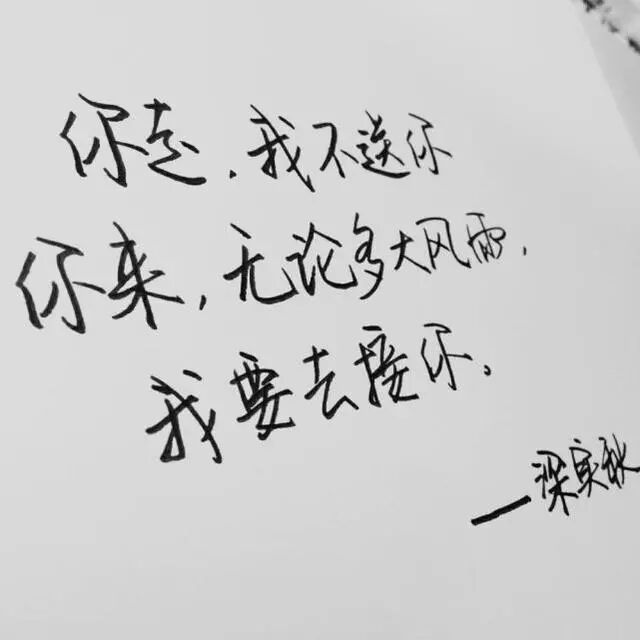 你走,我不送你
你来,无论多大风雨,
我要去接你。
——深实秋